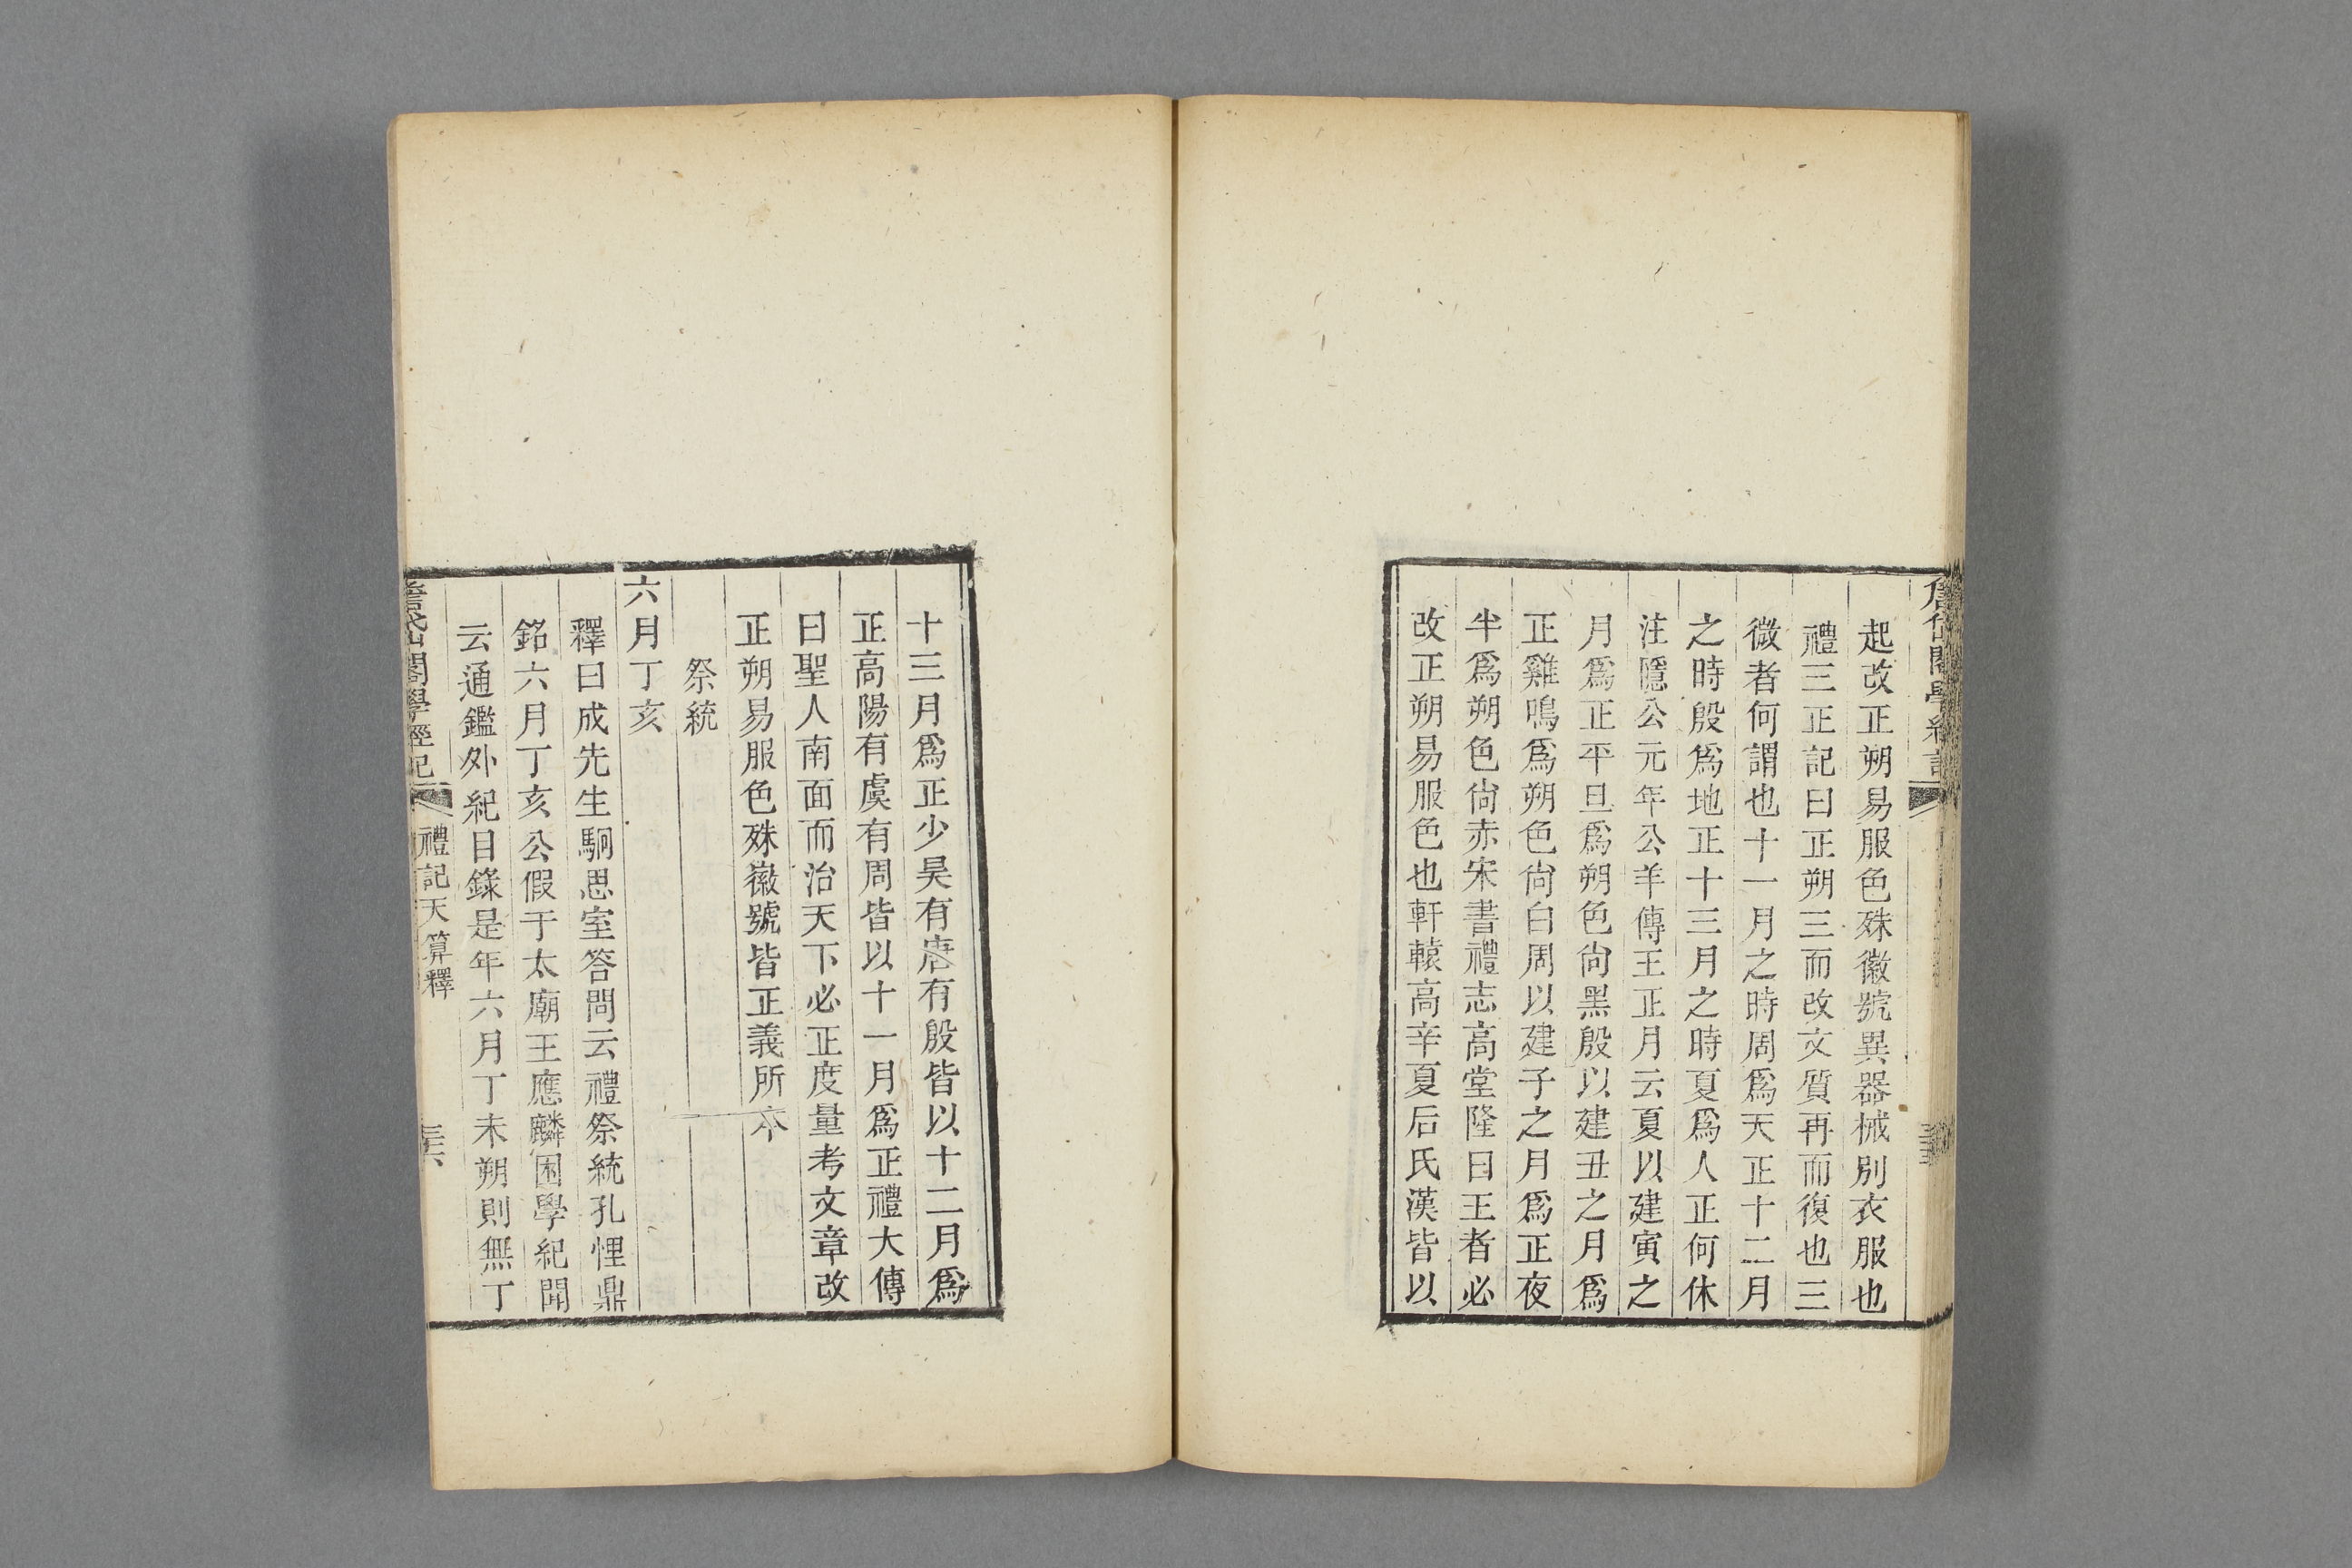 起改正朔易服色殊徽號異器械別衣服也
禮三正記曰正朔三而改文質再而復也三
微者何謂也十一月之時周爲天正十二月
之時殷爲地正十三月之時夏爲人正何休
注隱公元年公羊傳王正月云夏以建寅之
月爲正平旦爲朔色尙黑殷以建丑之月爲
正雞鳴爲朔色尙白周以建子之月爲正夜
半爲朔色尙赤宋書禮志高堂隆曰王者必
改正朔易服色也軒轅高辛夏后氏漢皆以
十三月爲正少昊有唐有殷皆以十二月爲
正高陽有虞有周皆以十一月爲正禮大傳
曰聖人南面而治天下必正度量考文章改
正朔易服色殊徽號皆正義所本
祭統
六月丁亥
釋曰成先生駉思室答問云禮祭統孔悝鼎
銘六月丁亥公假于太廟王應麟困學紀聞
云通鑑外紀目錄是年六月丁未朔則無丁
閣學經記 禮記天算釋 三六